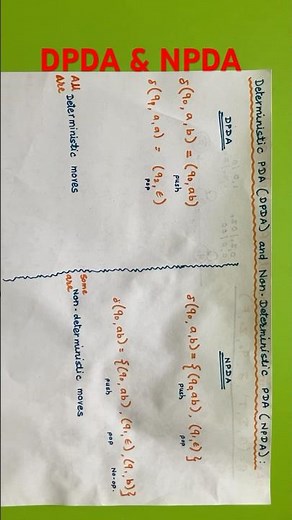 DPDA & NPDA
Deterministic PDA (DPDA) and Non-Deterministic PDA (NPDA):
DPDA
δ(q₀, a, b) = (q₀, ab)
push
δ(q₁, a, a) = (q₂, ε)
pop
All Deterministic moves
are
NPDA
δ(q₀, a, b) = {(q₀, ab), (q₁, ε)}
push pop
δ(q₀, ab) = {(q₀, ab), (q₁, ε), (q₁, b)}
push pop No-op.
Some Non-deterministic moves
are